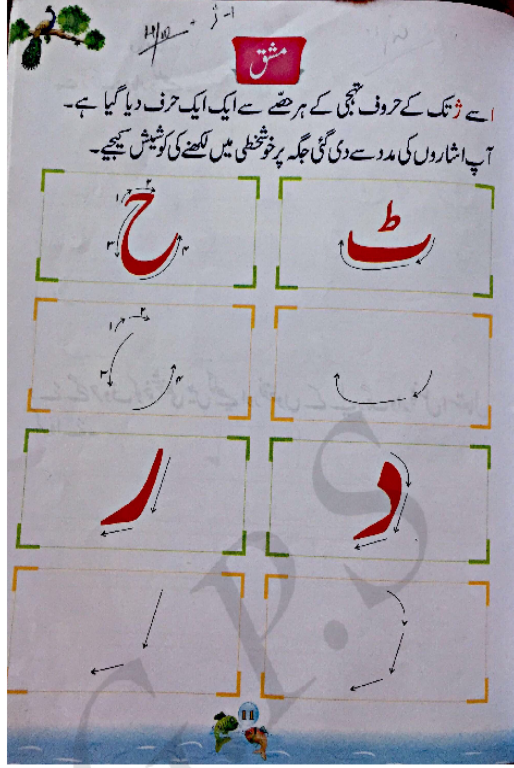 مشق
ا سے ژ تک کے حروف تہجی کے ہر حصّے سے ایک ایک حرف دیا گیا ہے۔
آپ اشاروں کی مدد سے دی گئی جگہ پر خوشخطی میں لکھنے کی کوشش کیجیے۔
ٹ ح
۱ ۲ ۳ ۴
۱ ۲ ۳ ۴
د ر
11
G.P.S